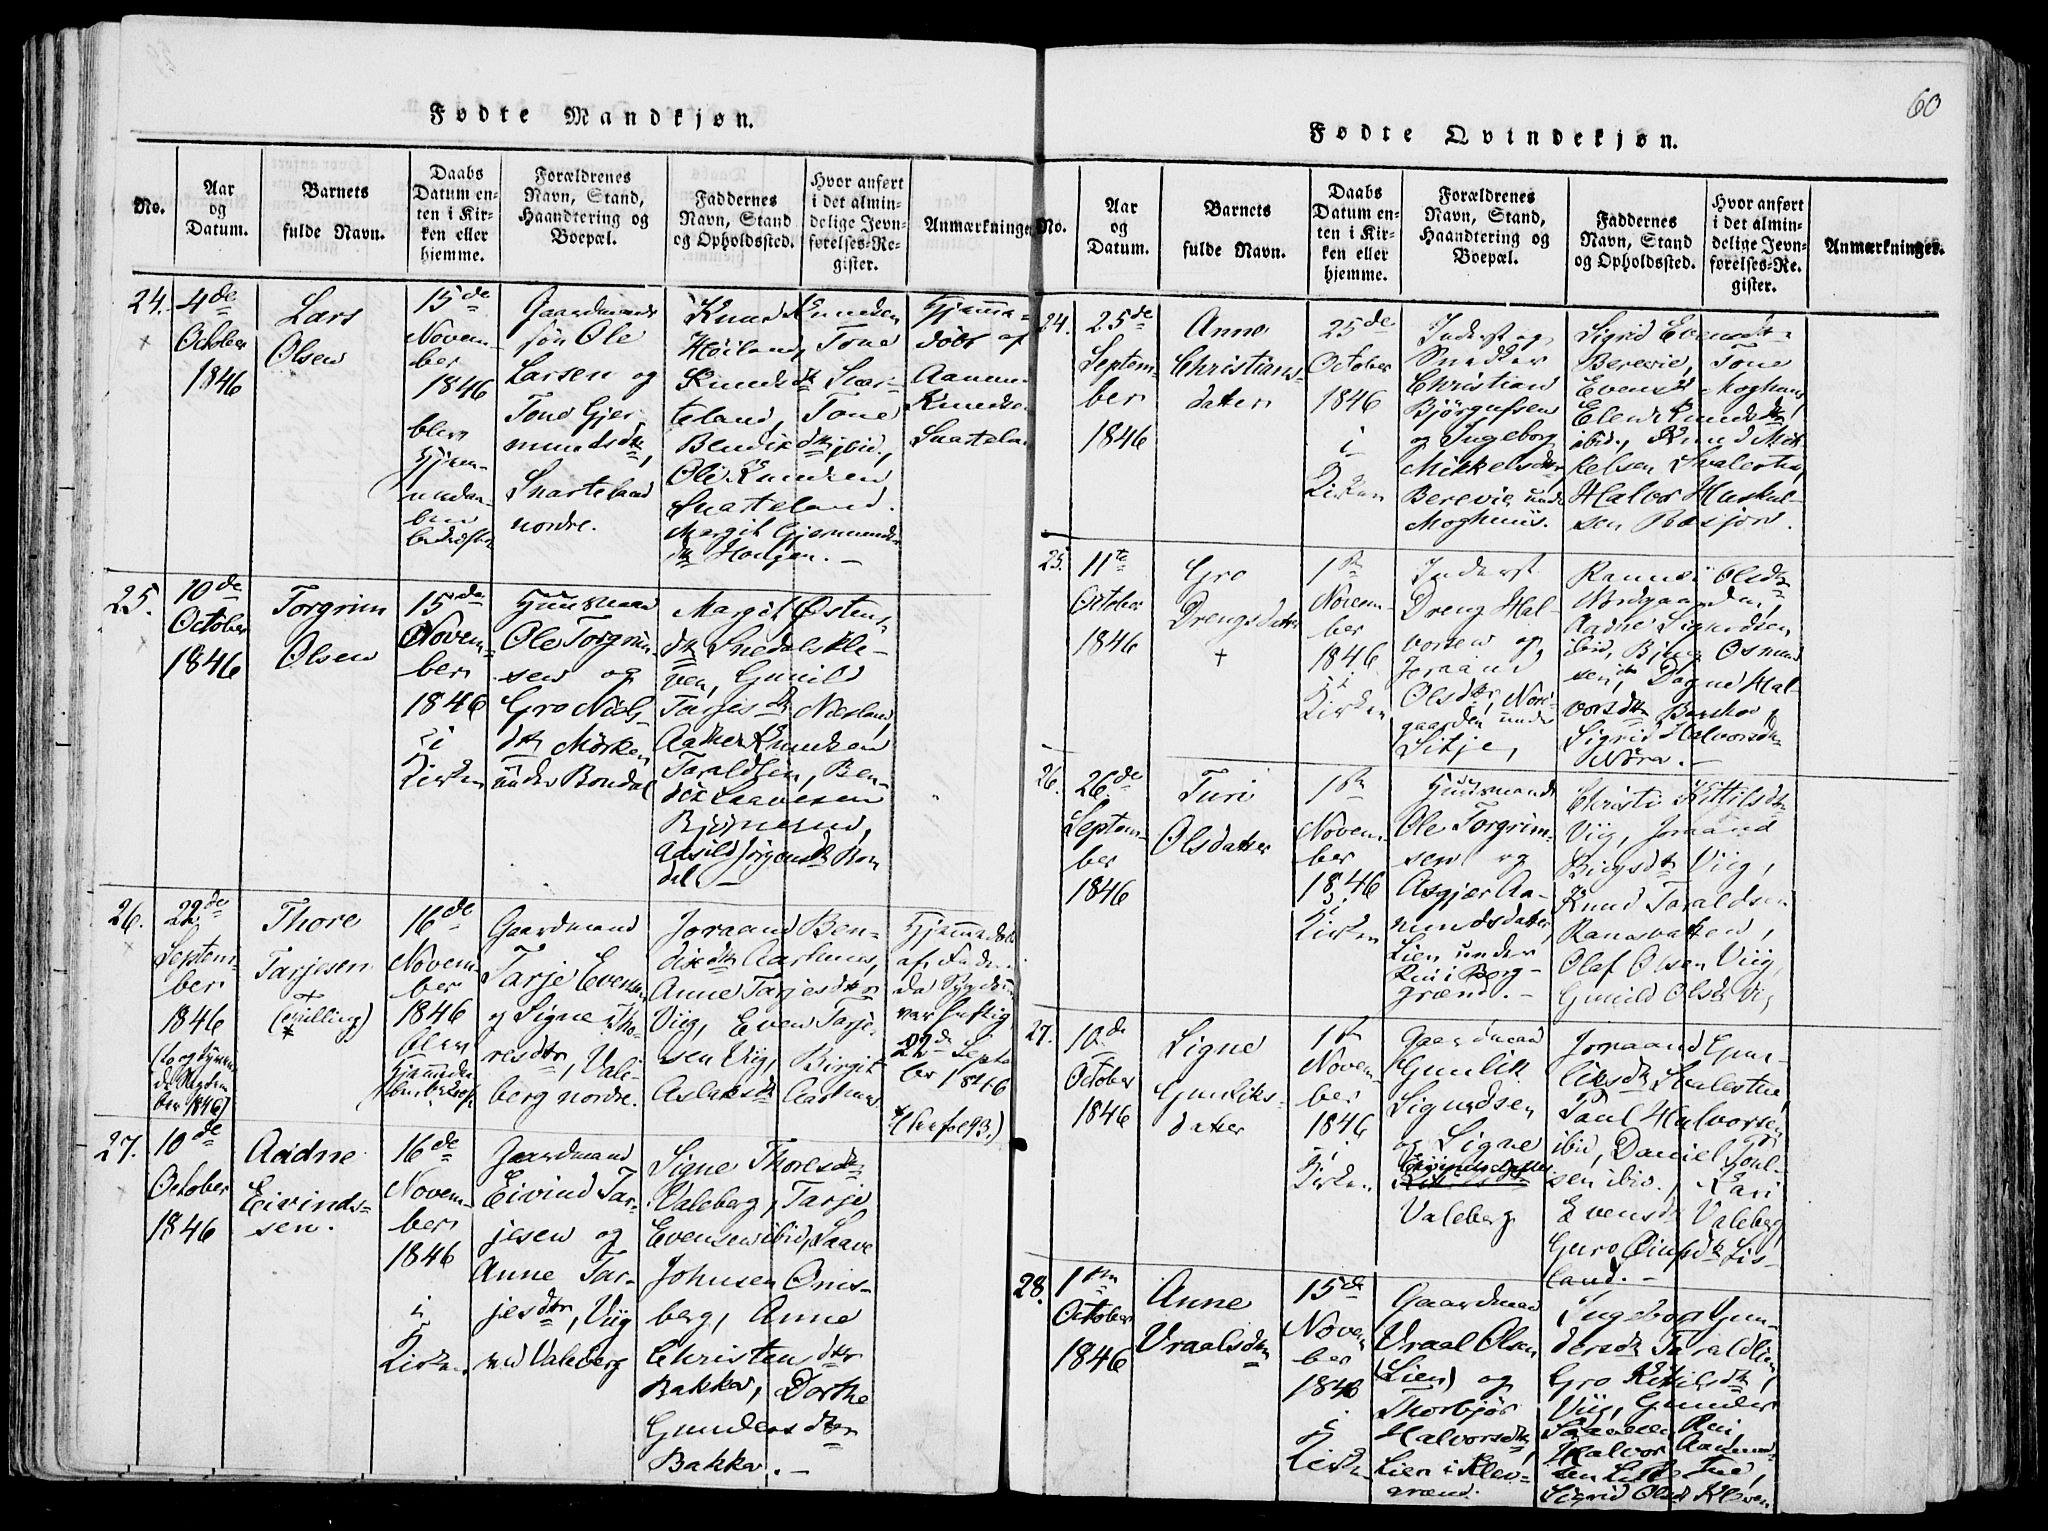 60
Fødte Mandkjøn.
No.
Aar
og
Datum.
Barnets
fulde Navn.
Daabs
Datum en-
ten i Kir-
ken eller
hjemme.
Forældrenes
Navn, Stand,
Haandtering og
Boepæl.
Faddernes
Navn, Stand
og Opholdssted.
Hvor anført
i det almin-
delige Jevn-
førelses-Re-
gister.
Anmærkninger
24.
4de
October
1846
Lars
Olsen
15de
Novem-
ber
1846
blev
Hjem-
medaa-
ben
bekræftet
Gaardmands
søn Ole
Larsen og
Tone Gjer
mundsdtr,
Snarteland
nordre.
Knud Knudsen
Høiland, Tone
Knudsdtr Snar-
teland, Tone
Bendixdtr ibid,
Ole Knudsen
Snarteland.
Margit Gjermunds-
dtr Haugen. –
Hjemme-
døbt af
Aanun
Knudsen
Snartelan
25.
10de
October
1846
Torgrim
Olsen
15de
Novem-
ber
1846
i
Kirken
Huusmand
Ole Torgrim-
sen og
Gro Niels-
dtr Mörke
under Bondal
Margit Østens
dtr Snedalskle-
ven, Gunild
Tarjesdtr Nesland,
Aadne Knudsen
Taraldlien, Ben-
dix Saavesen
Bjønnesund,
Aasild Jørgensdtr Bon
dal –
26.
22de
Septem-
ber
1846
Thore
Tarjesen
(Tvilling)
16de
Novem-
ber
1846
blev
Hjemmedaa
ben bekræft
Gaardmand
Tarje Evensen
og Signe Tho-
resdtr, Vale-
berg nordre.
Joraand Ben-
dixdtr Aarhuus,
Anne Tarjesdtr
Viig, Even Tarje-
sen Viig, Birgit
Aslaksdtr Aarhuus
Hjemmedøbt
af Fader
da Sygdom
var heftig
22de Septem
ber 1846
27.
10de
October
1846
Aadne
Eivinds-
sen.
16de
Novem-
ber
1846
i
Kirken
Gaardmand
Eivind Tar-
jesen og
Anne Tar-
jesdtr, Viig
ved Valeberg
Signe Thoresdtr
Valeberg, Tarje
Evensen ibid, Saave
Johnsen Onis-
berg, Anne
Christensdtr
Bakken, Dorthe
Gundersdtr
Bakken. –
Fødte Qvindekjøn.
No.
Aar
og
Datum.
Barnets
fulde Navn.
Daabs
Datum en-
ten i Kir-
ken eller
hjemme.
Forældrenes
Navn, Stand,
Haandtering og
Boepæl.
Faddernes
Navn, Stand
og Opholdssted.
Hvor anført
i det almin-
delige Jevn-
førelses-Re-
gister.
Anmærkninger.
24.
25de
Septem-
ber
1846
Anne
Christians-
datter
25de
October
1846
i
Kirken
Inderst og
Snedker
Christian
Bjørgufsen
og Ingeborg
Mikkelsdtr
Berevie under
Moghuus.
Sigrid Evensdtr
Berevie, Tone
Evensdtr Moghuus,
Elen Knudsdtr
ibid., Knud Mik
kelsen Svalestue,
Halvor Huskul-
sen Rosjord.
25.
11te
October
1846
Gro
Drengsdatter
1ste
Novem-
ber
1846
i
Kirken
Inderst
Dreng Hal-
vorsen og
Joraand
Olsdtr, Nord-
gaarden under
Sitje,
Rannei Olsdtr
Nordgaarden,
Aadne Sigurdsen
ibid, Bjørg Osmund
sen, Dagne Hal-
vorsdtr Barsko,
Sigrid Halvorsdtr
Nöra. –
26.
26de
Septem-
ber
1846
Turi
Olsdatter
1ste
Novem-
ber
1846
i
Kirken
Huusmand
Ole Torgrim-
sen og
Asgjer Aa-
nundsdatter,
Lien under
Rui i Berg-
grænd. –
Christi Kittilsdtr
Viig, Joraand
Birgitsdtr Viig,
Knud Taraldsen
Ramsvatten,
Olaf Olsen Viig,
Gunild Olsdtr Vig
27.
10de
October
1846
Signe
Gunliks-
datter
1ste
Novem-
ber
1846
i
Kirken
Gaardmand
Gunlik
Sigurdsen
og Signe
Eivindsdatter
Valeberg
Joraand Gun-
liksdtr Svalestue,
Paul Halvorsen
ibid, Daniel Poul-
sen ibid., Kari
Evensdtr Valeberg,
Guro Eivindsdtr Lis-
land. –
28.
1ste
October
1846
Anne
Vraalsdtr
15de
Novem
ber
1846
i
Kirken
Gaardmand
Vraal Olsen
(Lien) og
Thorbjør
Halvorsdtr,
Lien i Klev-
grænd.
Ingeborg Gun-
dersdtr Taraldlien
Gro Kittilsdtr,
Viig, Gunder
Saavesen Rui,
Halvor Aanund
sen Lille Tue,
Sigrid Olsdtr Kleven